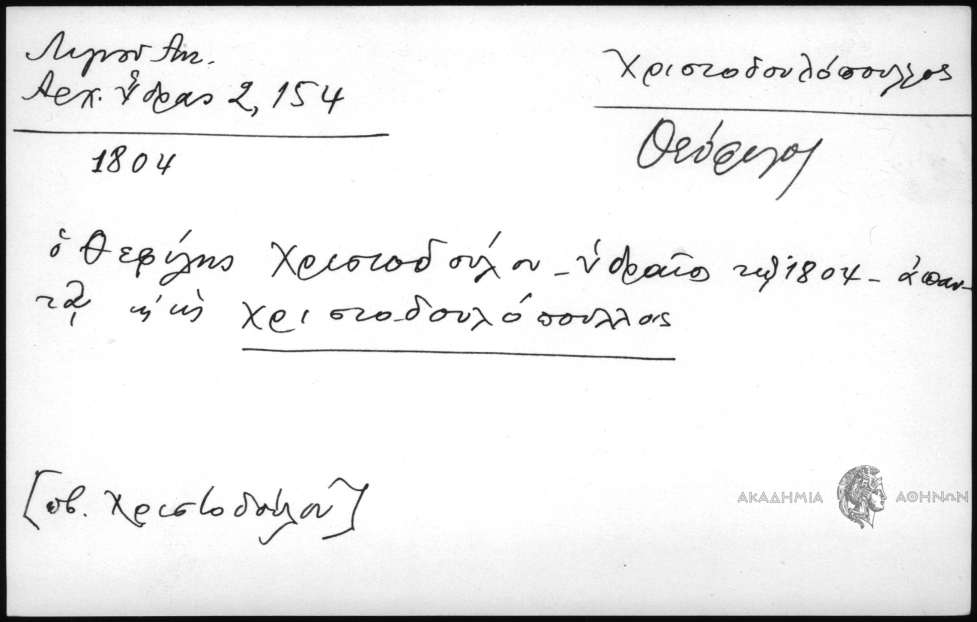 Λιγνού Αντ.
Αρχ. Ὕδρας 2, 154
1804
Χριστοδουλόπουλλος
Θεόφιλος
ὁ Θεφίλης Χριστοδούλου - ὑδραῖος τῷ 1804 - ἀπαν-
τᾷ κ̀ ὡς Χριστοδουλόπουλλος
[πβ. Χριστοδούλου]
ΑΚΑΔΗΜΙΑ ΑΘΗΝΩΝ